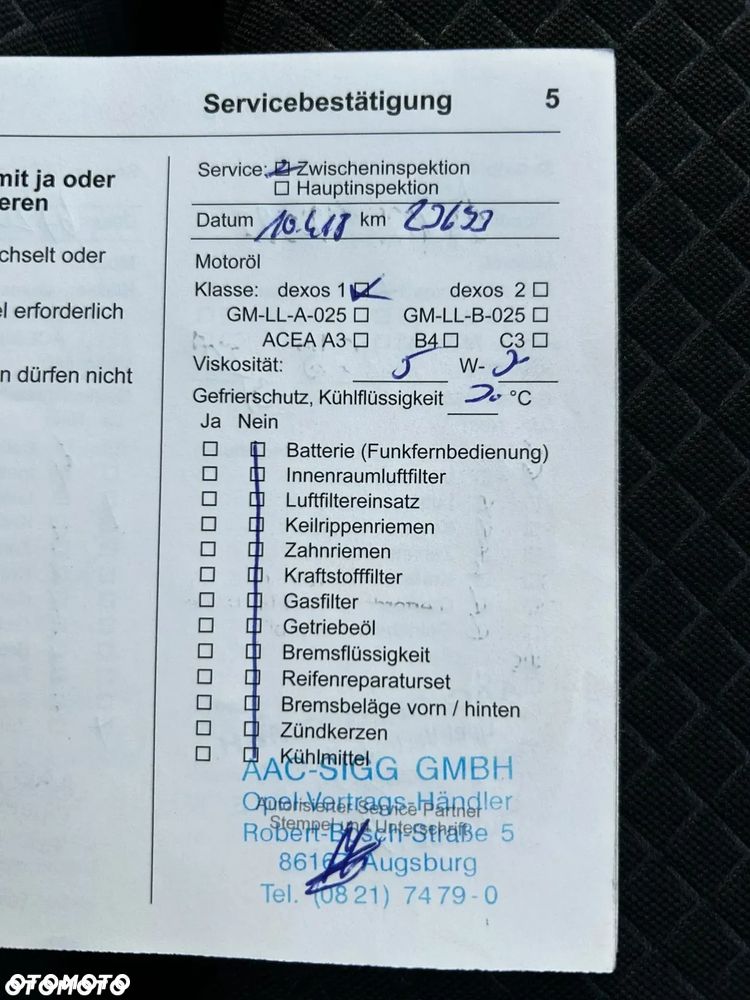 Servicebestätigung 5
mit ja oder
eren
chselt oder
el erforderlich
n dürfen nicht
Service: Zwischeninspektion
Hauptinspektion
Datum 10.4.18 km
Motoröl
Klasse: dexos 1 dexos 2
GM-LL-A-025 GM-LL-B-025
ACEA A3 B4 C3
Viskosität: 5 W-
Gefrierschutz, Kühlflüssigkeit °C
Ja Nein
Batterie (Funkfernbedienung)
Innenraumluftfilter
Luftfiltereinsatz
Keilrippenriemen
Zahnriemen
Kraftstofffilter
Gasfilter
Getriebeöl
Bremsflüssigkeit
Reifenreparaturset
Bremsbeläge vorn / hinten
Zündkerzen
Kühlmittel
AAC-SIGG GMBH
Opel-Vertrags-Händler
Autorisierter Service Partner
Stempel und Unterschrift
Robert-Bosch-Straße 5
Augsburg
Tel. (0821) 7479-0
OTOMOTO